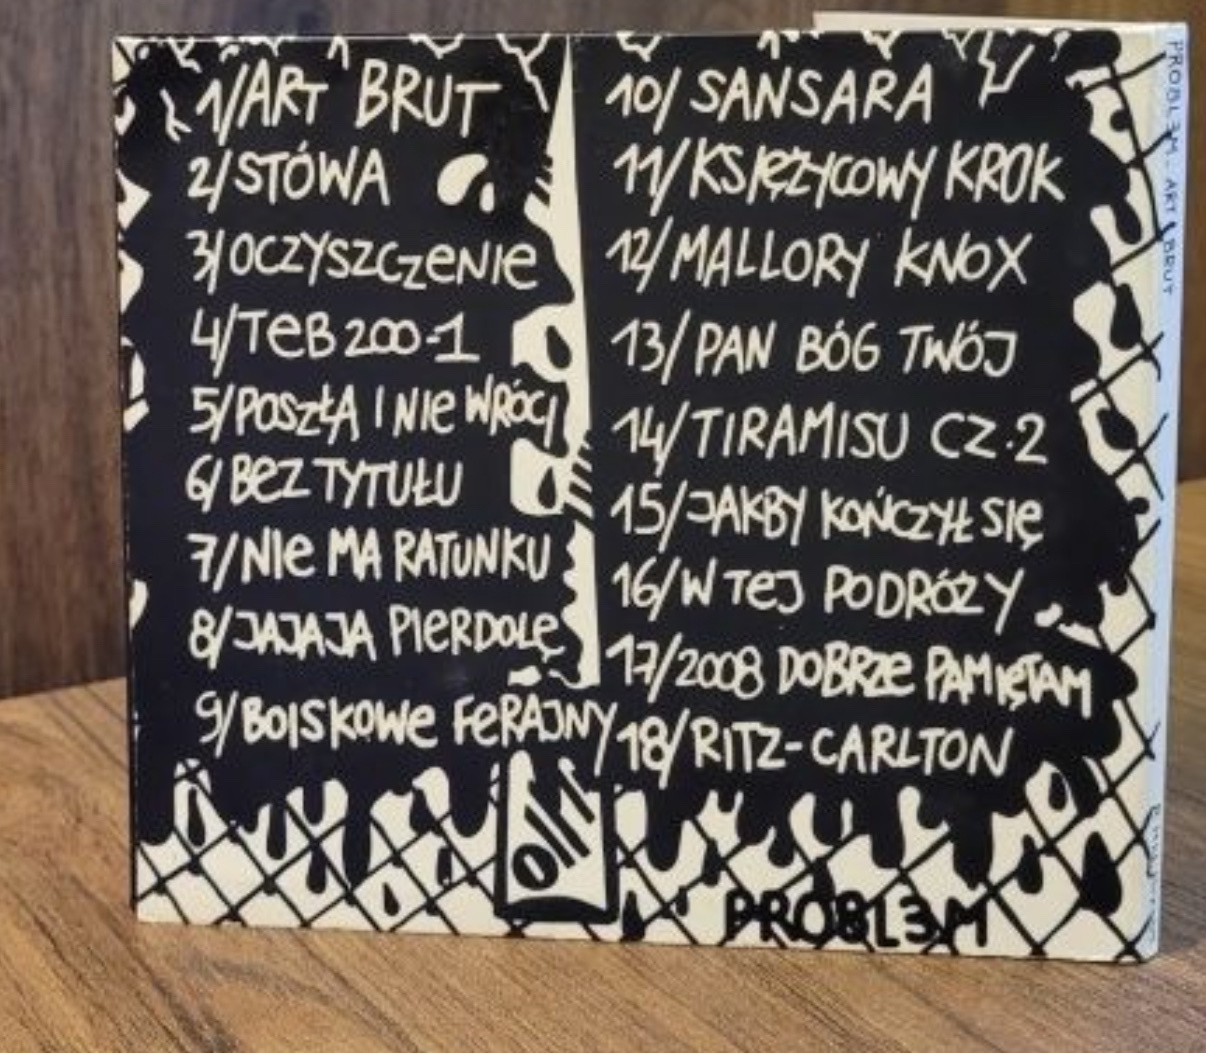 1/ART BRUT
2/STÓWA
3/OCZYSZCZENIE
4/TEB 200-1
5/POSZŁA I NIE WRÓCI
6/BEZ TYTUŁU
7/NIE MA RATUNKU
8/JAJAJA PIERDOLĘ
9/BOISKOWE FERAJNY
10/SANSARA
11/KSIĘŻYCOWY KROK
12/MALLORY KNOX
13/PAN BÓG TWÓJ
14/TIRAMISU CZ.2
15/JAKBY KOŃCZYŁ SIĘ
16/W TEJ PODRÓŻY
17/2008 DOBRZE PAMIĘTAM
18/RITZ-CARLTON
PROBL3M
PROBL3M. ART BRUT